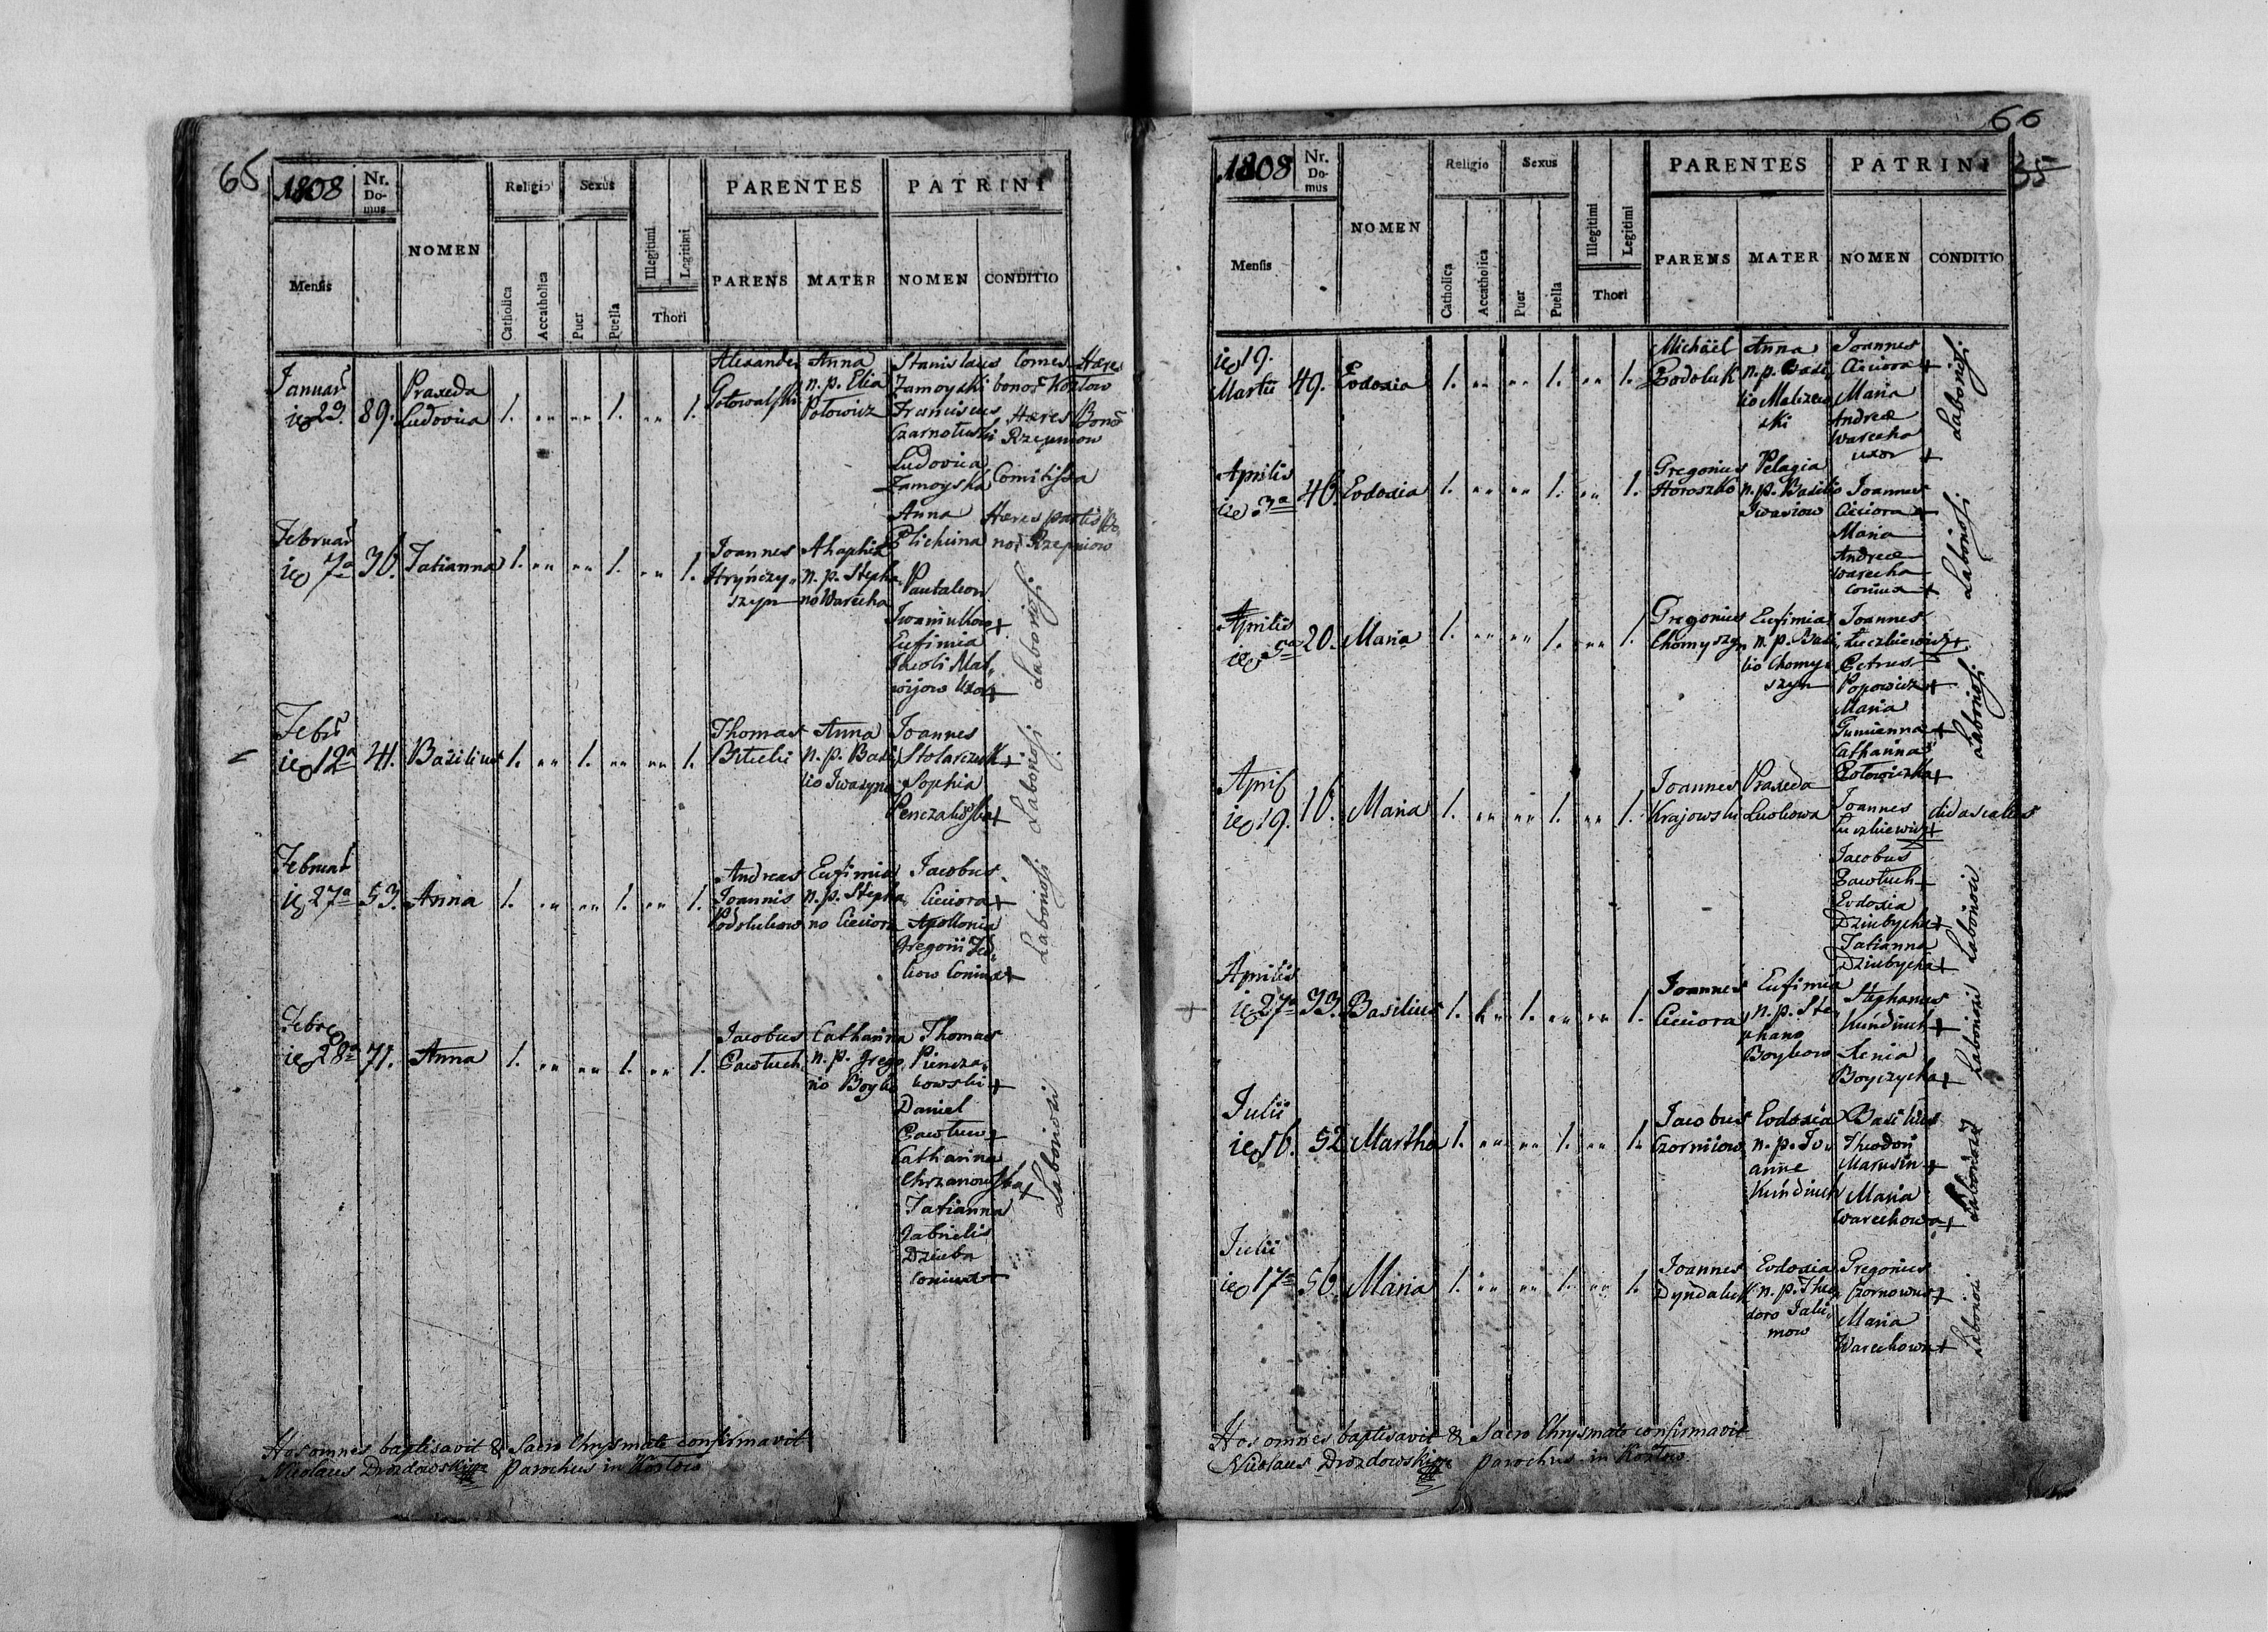 65
1808
Nr.
Do-
mus
Mensis
NOMEN
Religio
Sexus
Catholica
Accatholica
Puer
Puella
Illegitimi
Legitimi
Thori
PARENTES
PARENS
MATER
PATRINI
NOMEN
CONDITIO
Januar
ie 29. 89. Praxeda
Ludovica 1. „ „ 1. „ 1.
Alexander
Anna
n. p. Elia
Potowicz
Stanislaus Comes Hæres
Zamoyski bonor Kozłow
Franciscus Hæres Bonor
Rzepniow
Ludovica
Zamoyska Comitissa
Anna Hæres partis Bo,
nor Rzepniow
Februar
ie 7a 36. Tatianna 1. „ „ 1. „ 1.
Joannes
Hryńczy,,
szyn
n. p. Stepha,
no Warecha
Pantaleon
Eufimia
Jacobi Mat,,
wijow Uxor +
Laboriosi
Febr
ie 12a 41. Basilius 1. „ 1. „ „ 1.
Thomas
Anna
n. p. Basi,
lio Iwasyna
Joannes
Stolarczuk +
Sophia
Laboriosi
Februar
ie 27a 53. Anna 1. „ „ 1. „ 1.
Andreas
Joannis
Eufimia
n. p. Stepha,
no Cieciora
Jacobus
Cieciora +
Apollonia
Gregorii
Laboriosi
Febr
ie 28a 71. Anna 1. „ „ 1. „ 1.
Jacobus
Pawluch
Catharina
n. p. Grego,
rio Boyko
Thomas
Piencza,,
kowski +
Daniel
Catharina
Chrzanowska +
Tatianna
Gabrielis
Dziuba
coniunx
Laboriosi
Hos omnes baptisavit & Sacro Chrysmate confirmavit
Nicolaus Drozdowski parochus in Kozłow
66
35
1808
Nr.
Do-
mus
Mensis
NOMEN
Religio
Sexus
Catholica
Accatholica
Puer
Puella
Illegitimi
Legitimi
Thori
PARENTES
PARENS
MATER
PATRINI
NOMEN
CONDITIO
ie 19.
Martii 49. Eudoxia 1. „ „ 1. „ 1.
Michaël
Podoluk
Anna
n. p. Basi,
lio
Joannes
Cieciora +
Maria
Andreæ
Warecha
uxor +
Laboriosi
Aprilis
ie 3a 46. Eudoxia 1. „ „ 1. „ 1.
Gregorius
Horoszko
Pelagia
n. p. Basilio
Iwasiow
Joannes
Cieciora +
Maria
Andreæ
Warecha
coniux +
Laboriosi
Aprilis
ie 5a 20. Maria 1. „ „ 1. „ 1.
Gregorius
Chomyszyn
Eufimia
n. p. Basi,
lio Chomy,
szyn
Joannes
Petrus
Popowicz +
Maria
Gumienna +
Catharina
Laboriosi
April
ie 19. 16. Maria 1. „ „ 1. „ 1.
Joannes
Krajowski
Praxeda
Joannes didascalus
Jacobus
Pawluch +
Eudoxia
Dziubycha +
Tatianna
Dziubycha +
Laboriosi
Aprilis
ie 27a 33. Basilius 1. „ 1. „ „ 1.
Joannes
Cieciora
Eufimia
n. p. Ste,
phano
Boykow
Stephanus
Kundiuch +
Xenia
Boyczycha +
Laboriosi
Julii
ie 16. 52. Martha 1. „ „ 1. „ 1.
Jacobus
Czorniow
Eudoxia
n. p. Jo,
anne
Kundiuch
Basilius
Theodori
Marusin +
Maria
Warechowa +
Laboriosi
Julii
ie 17a 56. Maria 1. „ „ 1. „ 1.
Joannes
Dyndaluk
Eudoxia
n. p. Theo,
doro Jaki,
mow
Gregorius
Maria
Warechowa +
Laboriosi
Hos omnes baptisavit & Sacro Chrysmate confirmavit
Nicolaus Drozdowski parochus in Kozłow